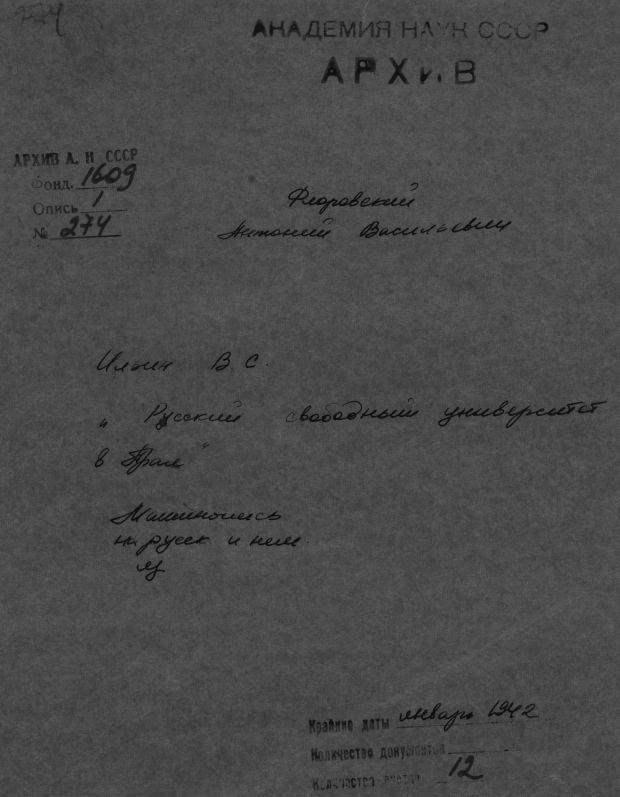 274
АКАДЕМИЯ НАУК СССР
АРХИВ
АРХИВ А. Н. СССР
Фонд. 1609
Опись 1
№ 274
Флоровский
Антоний Васильевич
Ильин В С.
„Русский свободный университет
в Праге"
Машинопись
на русск и нем.
яз
Крайние даты январь 1942
Количество документов
Количество листов 12